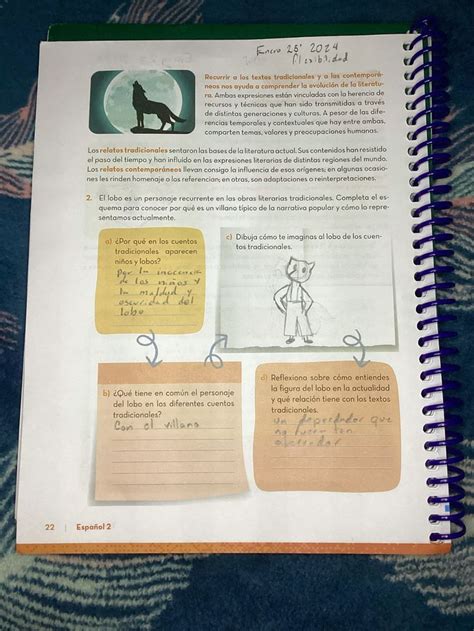 Enero 25 2024
Flexibilidad
Recurrir a los textos tradicionales y a los contemporá-
neos nos ayuda a comprender la evolución de la literatu-
ra. Ambas expresiones están vinculadas con la herencia de
recursos y técnicas que han sido transmitidas a través
de distintas generaciones y culturas. A pesar de las dife-
rencias temporales y contextuales que hay entre ambas,
comparten temas, valores y preocupaciones humanas.
Los relatos tradicionales sentaron las bases de la literatura actual. Sus contenidos han resistido
el paso del tiempo y han influido en las expresiones literarias de distintas regiones del mundo.
Los relatos contemporáneos llevan consigo la influencia de esos orígenes; en algunas ocasio-
nes les rinden homenaje o las referencian; en otras, son adaptaciones o reinterpretaciones.
2. El lobo es un personaje recurrente en las obras literarias tradicionales. Completa el es-
quema para conocer por qué es un villano típico de la narrativa popular y cómo lo repre-
sentamos actualmente.
a) ¿Por qué en los cuentos
tradicionales aparecen
niños y lobos?
Por la inocencia
de los niños y
la maldad y
oscuridad del
lobo
c) Dibuja cómo te imaginas al lobo de los cuen-
tos tradicionales.
b) ¿Qué tiene en común el personaje
del lobo en los diferentes cuentos
tradicionales?
Con el villano
d) Reflexiona sobre cómo entiendes
la figura del lobo en la actualidad
y qué relación tiene con los textos
tradicionales.
un depredador que
no
22 | Español 2